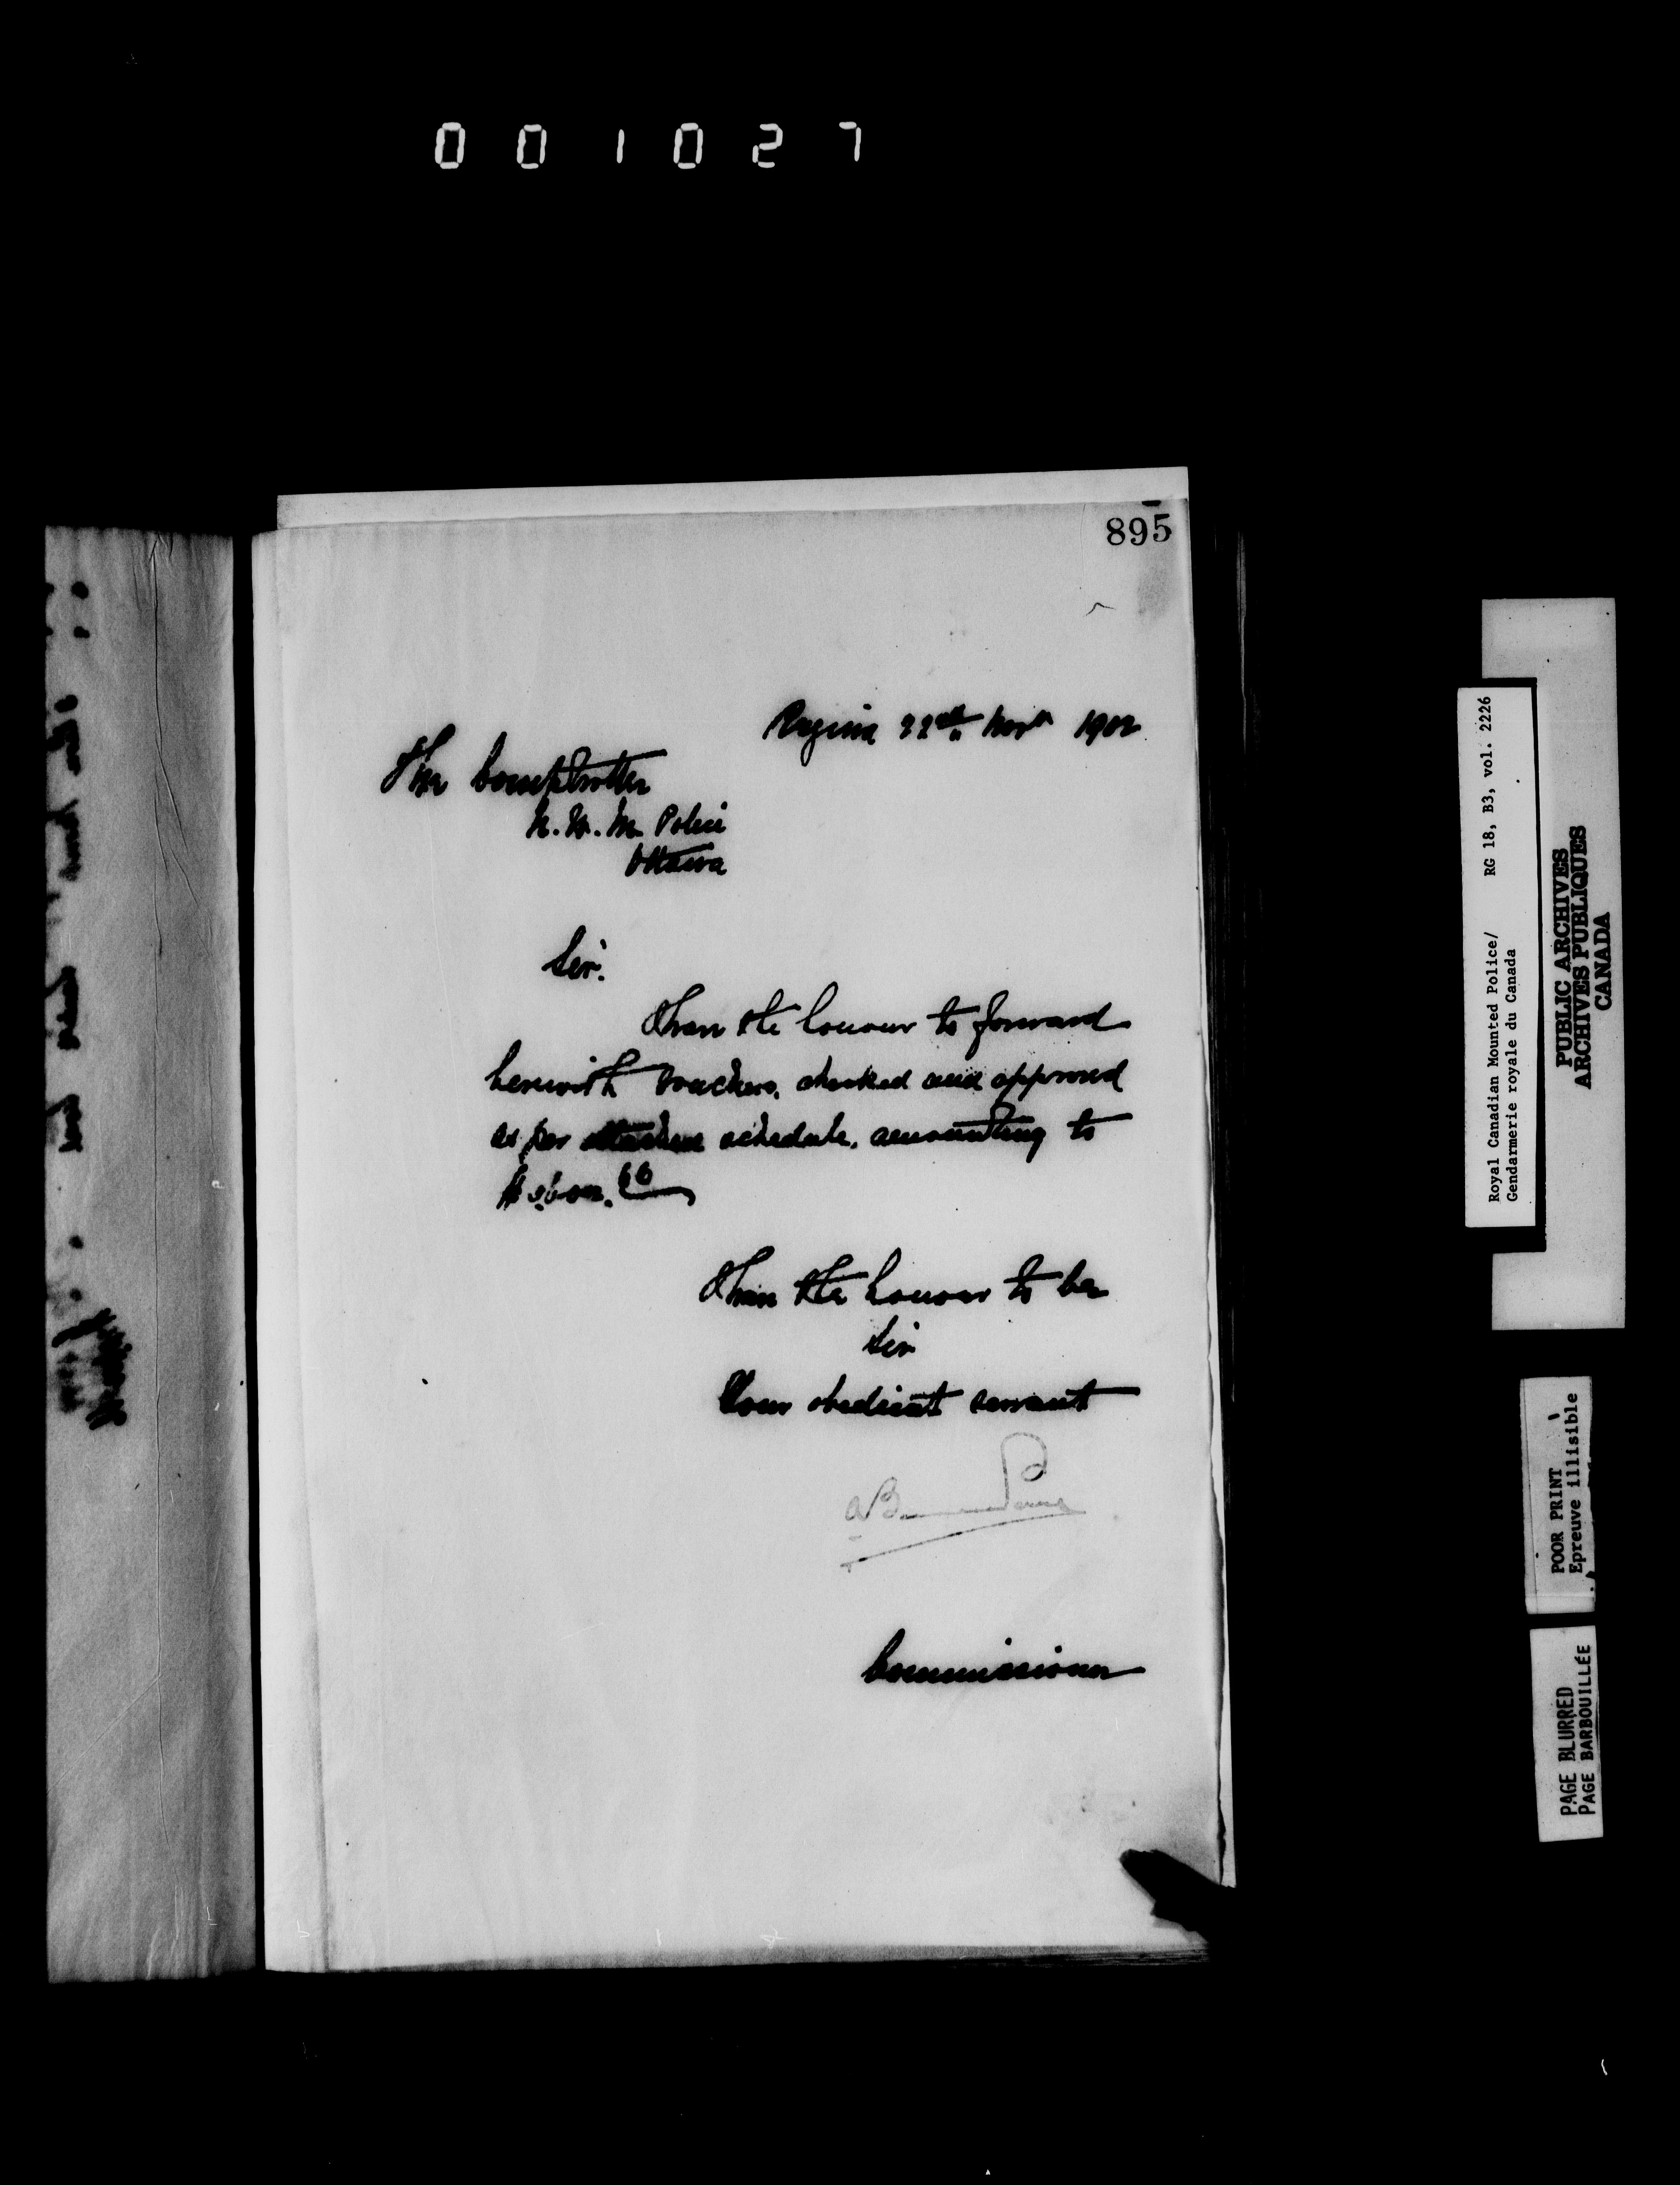 001027
895
Regina 22nd Novr 1902
The Comptroller
N. W. M. Police
Ottawa
Sir.
I have the honour to forward
herewith vouchers, checked and approved
as per attached schedule, amounting to
I have the honour to be
Sir
Your obedient servant
ABowen Perry
Commissioner
Royal Canadian Mounted Police/ RG 18, B3, vol. 2226
Gendarmerie royale du Canada
PUBLIC ARCHIVES
ARCHIVES PUBLIQUES
CANADA
POOR PRINT
Epreuve illisible
PAGE BLURRED
PAGE BARBOUILLÉE